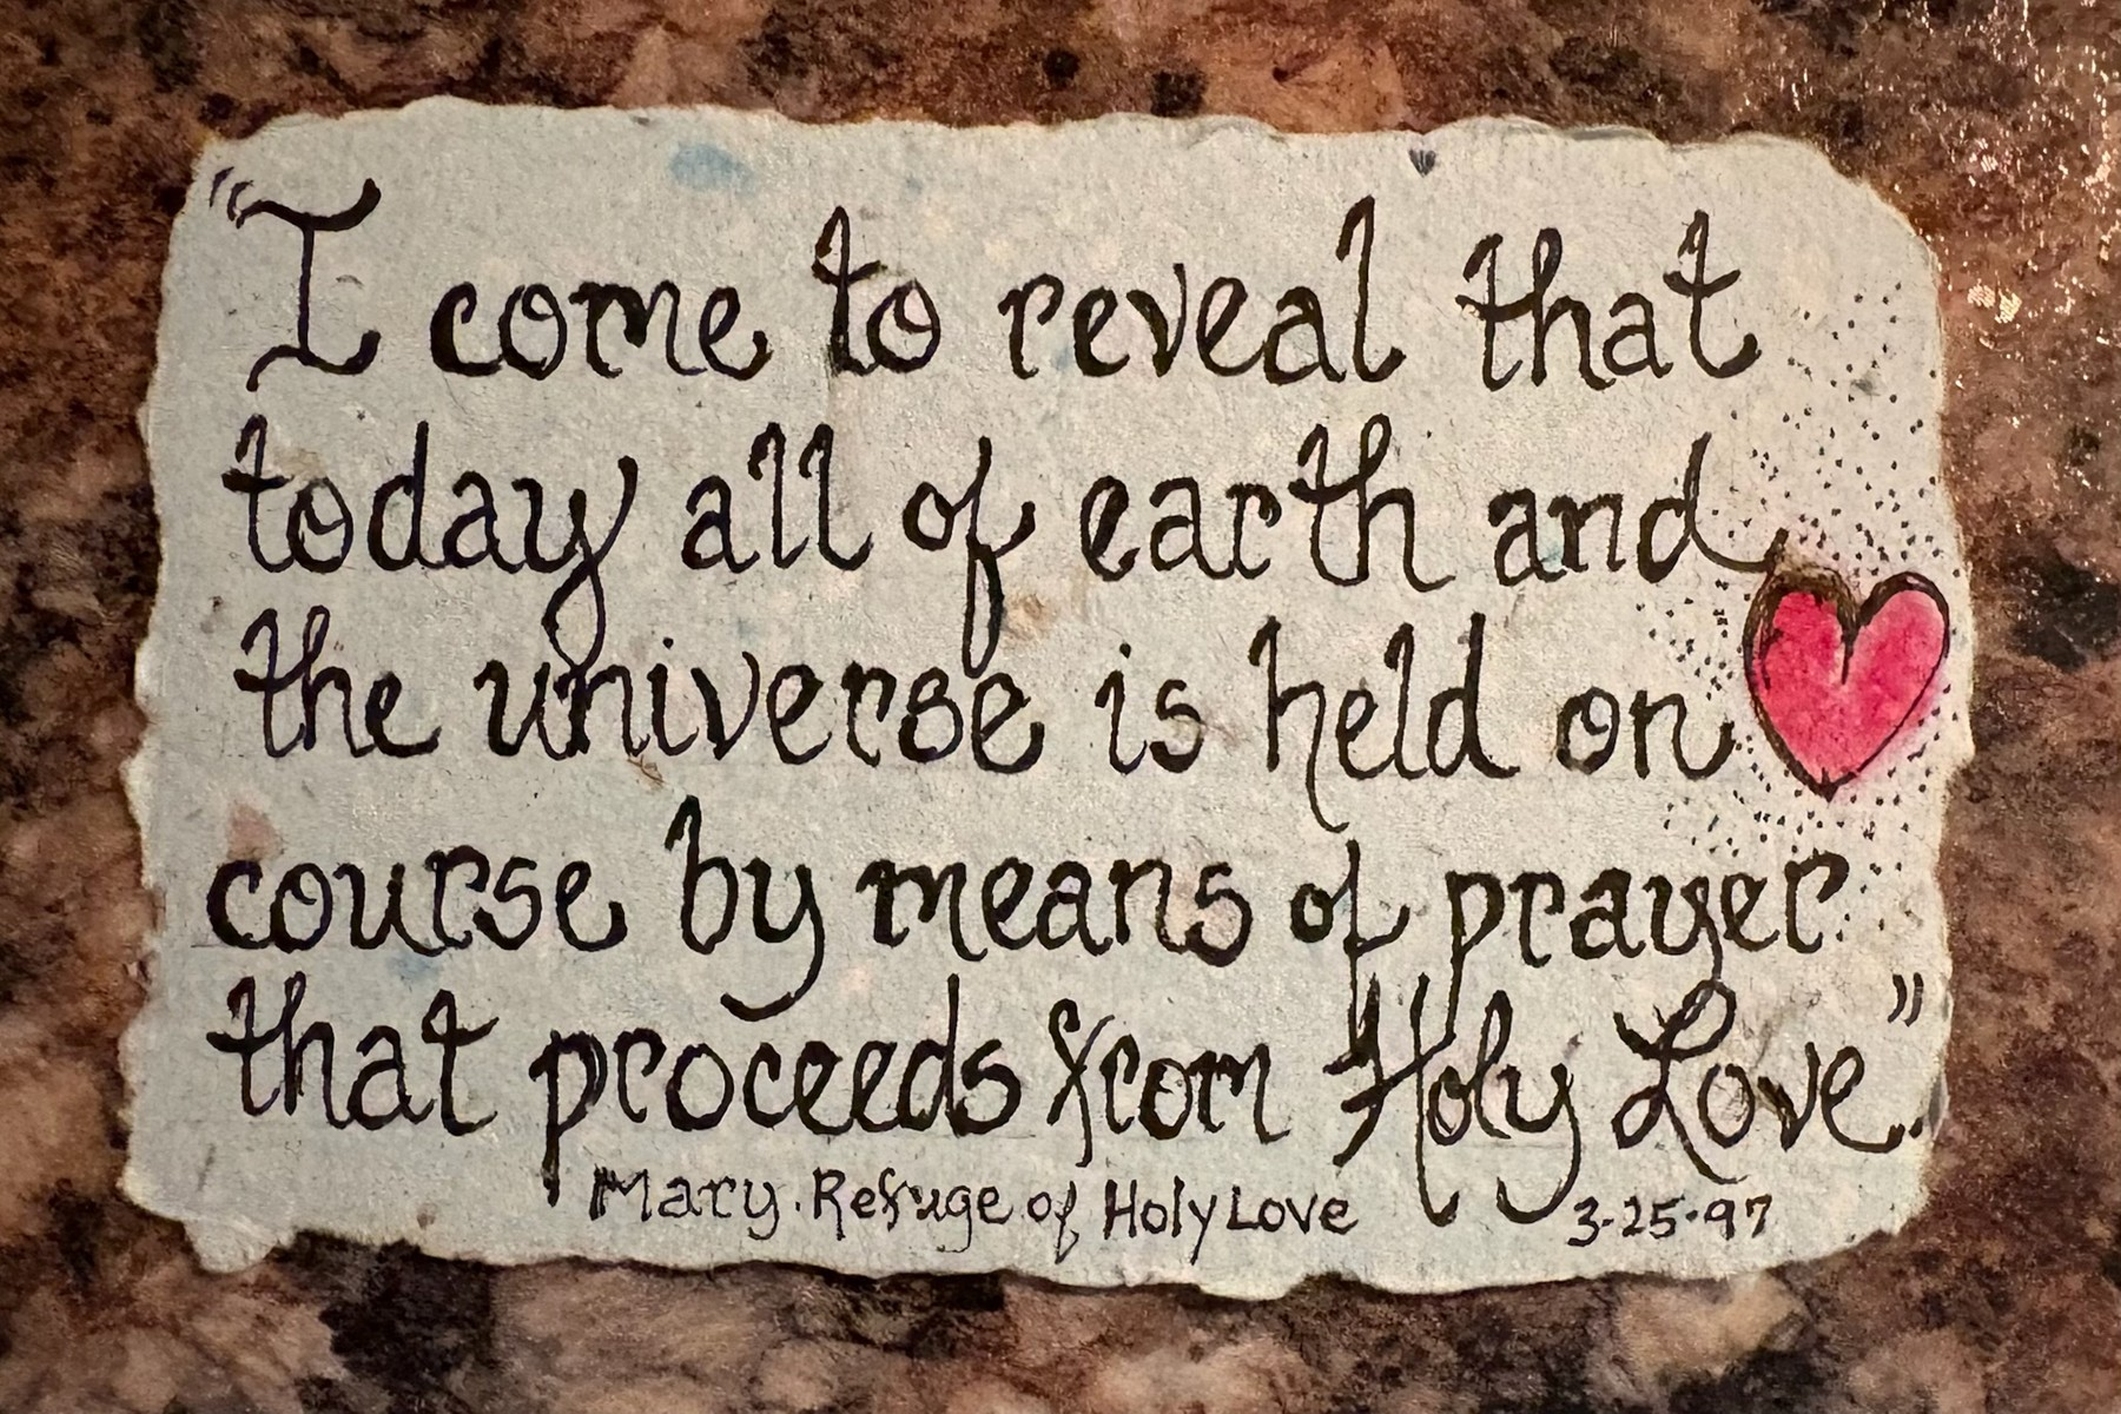 "I come to reveal that
today all of earth and
the universe is held on
course by means of prayer
that proceeds from Holy Love."
Mary. Refuge of Holy Love 3-25-97